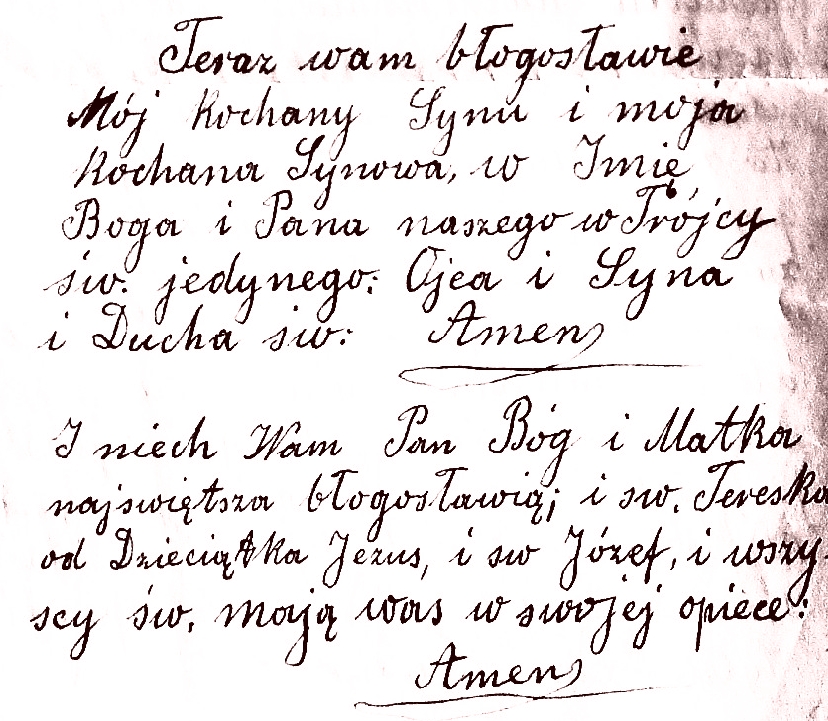 Teraz wam błogosławie
Mój kochany Synu i moja
kochana Synowa, w Imię
Boga i Pana naszego w Trójcy
św. jedynego: Ojca i Syna
i Ducha św: Amen
I niech Wam Pan Bóg i Matka
najświętsza błogosławią; i sw. Tereska
od Dzieciątka Jezus, i sw Józef, i wszy-
scy św. mają was w swojej opiece:
Amen